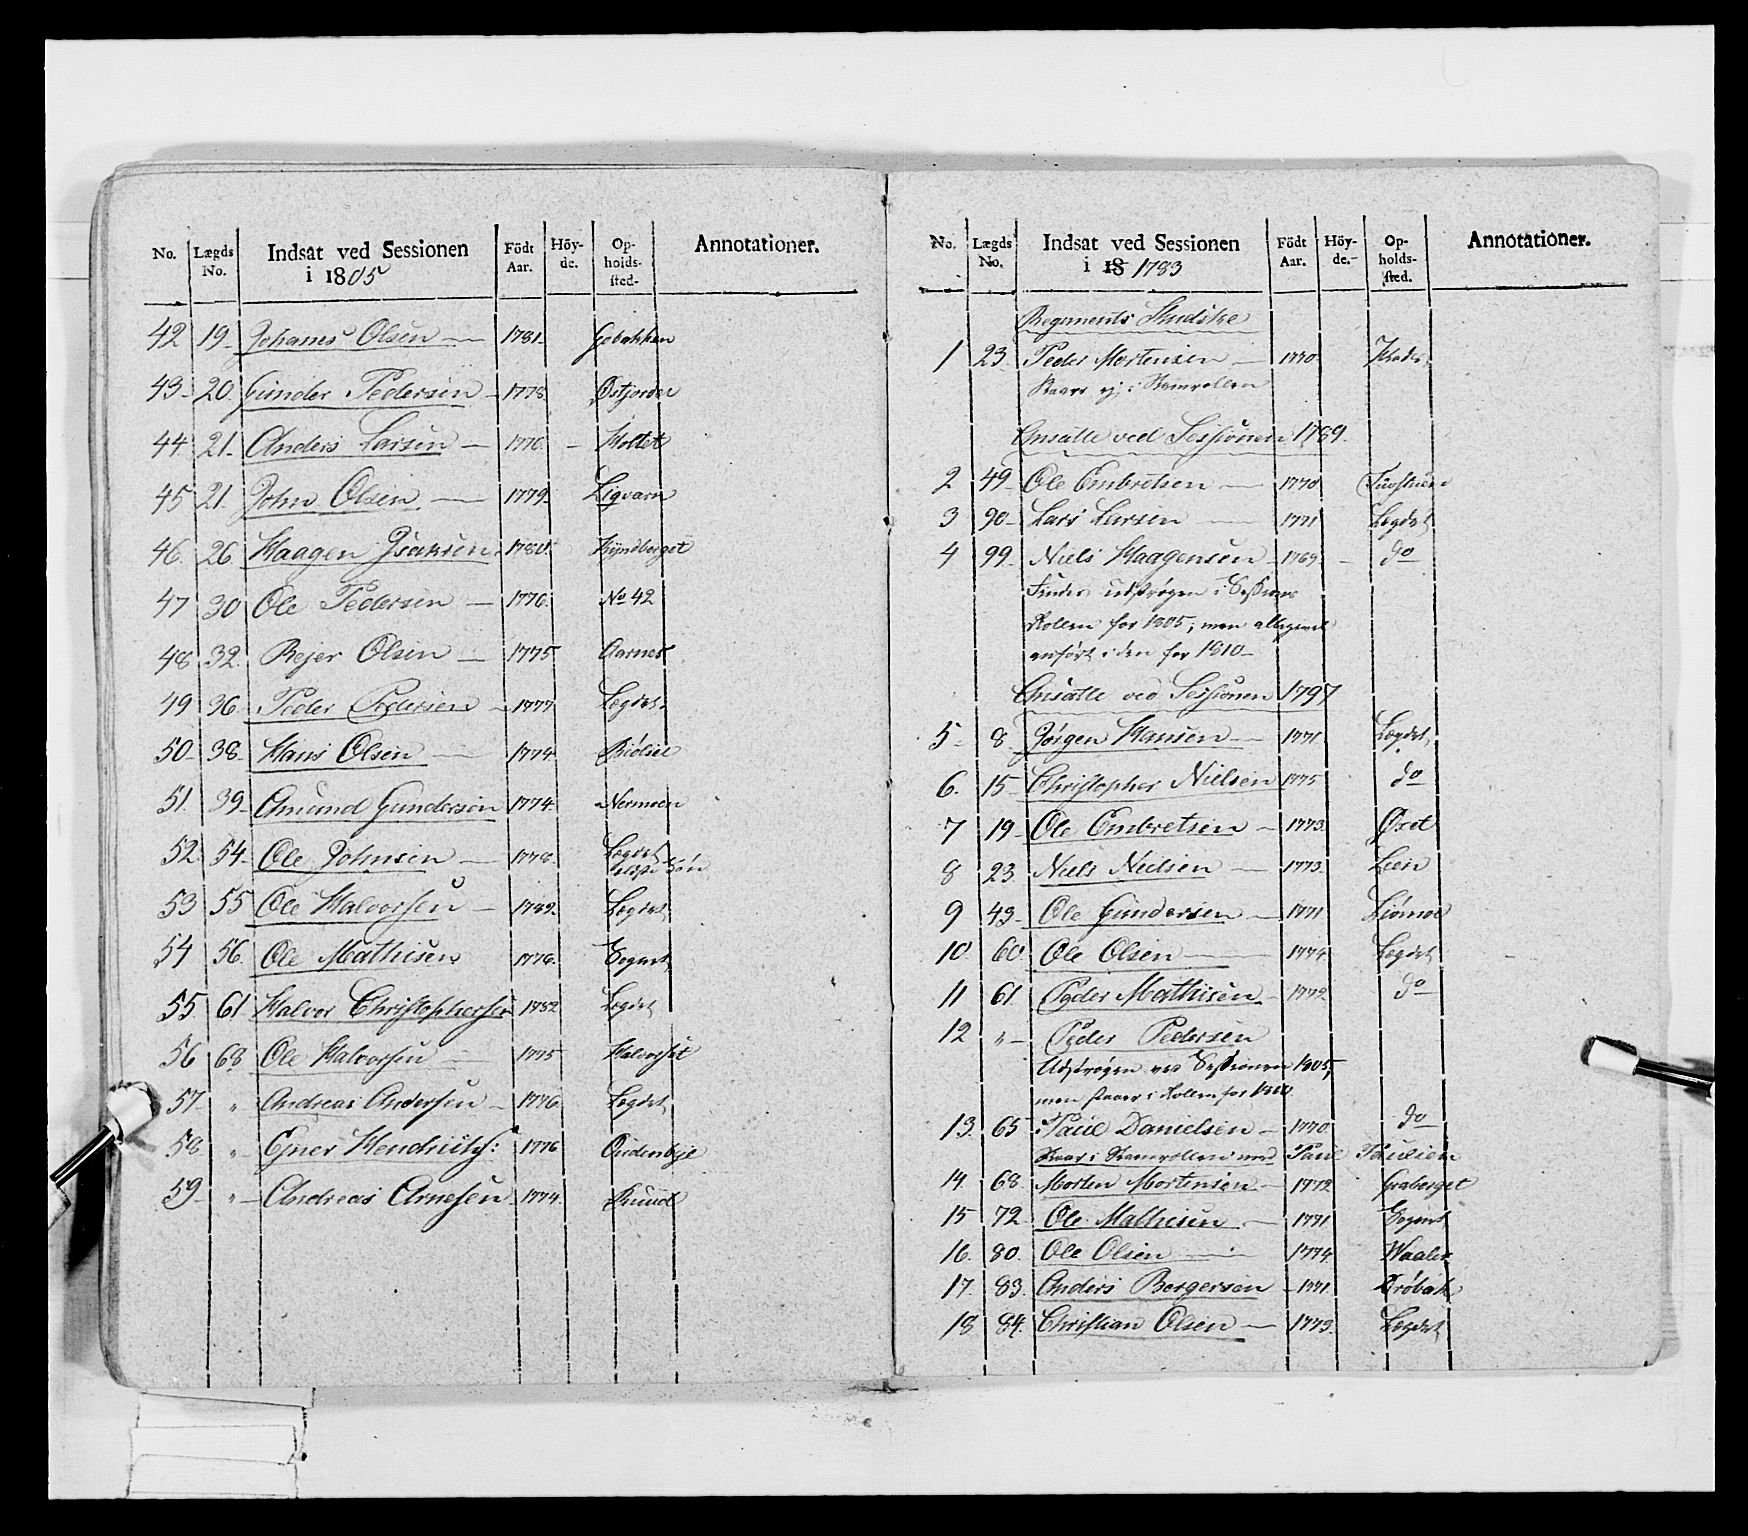 No. Lægds No. Indsat ved Sessionen i 1805 Födt Aar. Höyde. Opholdssted. Annotationer.
42 19 Johanes Olsen 1781 Gobakken
43 20 Gunder Pedersen 1778 Østjordet
44 21 Anders Larsen 1776 Holtet
45 21 John Olsen 1779 Ligvarn
46 26 Haagen Isaksen 1780 Kyndberget
47 30 Ole Pedersen 1776 No 42
48 32 Rejer Olsen 1775 Aarnes
49 36 Peder Pedersen 1777 Lægdet
50 38 Hans Olsen 1774
51 39 Amund Gundersen 1774 Nermoen
52 54 Ole Johnsen 1778 Lægdet
53 55 Ole Halvorsen Lægdet
54 56 Ole Mathisen 1776 Sognet
55 61 Halvor Christophersen 1782 Lægdet
56 68 Ole Halvorsen 1775 Halvorset
57 " Andreas Andersen 1776 Lægdet
58 " Ejner Hendrichs: 1776
59 " Andreas Arnesen 1774
No. Lægds No. Indsat ved Sessionen i 18 1783 Födt Aar. Höyde. Opholdssted. Annotationer.
Regiments
1 23 Peder Mortensen 1770
Staar ej i Stamrollen
Ansatte ved Sessionen 1789.
2 49 Ole Embretsen 1770
3 90 Lars Larsen 1771 Lægdet
4 99 Niels Haagensen 1769 do
Findes udstrøgen i Sessions
Rollen for 1805, men alligevel
anført i den for 1810
Ansatte ved Sessionen 1797
5 8 Jørgen Hansen 1771 Lægdet
6. 15 Christopher Nielsen 1775 do
7 19 Ole Embretsen 1773 Øset
8 23 Niels Nielsen 1773 Lien
9 43 Ole Gundersen 1771
10 60 Ole Olsen 1774 Lægdet
11 61 Peder Mathisen 1772 do
12 " Peder Pedersen
Udstrøgen ved Sessionen 1805,
men staar i Rollen for 1810
13. 65 Paul Danielsen 1770 do
Staar i Stamrollen med Paul Paulsen
14. 68 Morten Mortensen 1772 Graberget
15 72 Ole Mathisen 1771 Sognet
16. 80. Ole Olsen 1774 Waaler
17. 83. Anders Borgersen 1771 Drøbak
18 84. Christian Olsen 1773 Lægdet